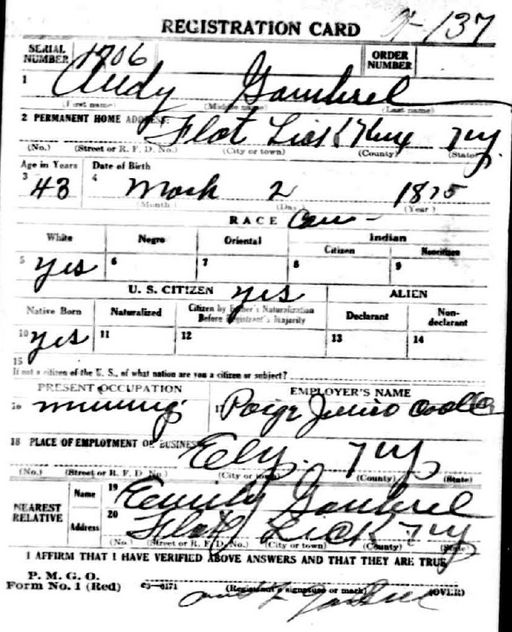 REGISTRATION CARD
SERIAL NUMBER 1706 ORDER NUMBER
1 Andy Gambrel
(First name) (Middle name) (Last name)
2 PERMANENT HOME ADDRESS: Flat Lick Knox Ky.
(No.) (Street or R. F. D. No.) (City or town) (County) (State)
Age in Years Date of Birth
3 43 4 March 2 1875
(Month) (Day) (Year)
RACE Cau -
White Negro Oriental Indian
Citizen Noncitizen
5 yes 6 7 8 9
U. S. CITIZEN yes ALIEN
Native Born Naturalized Citizen by Father's Naturalization Before Registrant's Majority Declarant Non-declarant
10 yes 11 12 13 14
15
If not a citizen of the U. S., of what nation are you a citizen or subject?
PRESENT OCCUPATION EMPLOYER'S NAME
16 mining 17 Paige
18 PLACE OF EMPLOYMENT OR BUSINESS: Ely. Ky
(No.) (Street or R. F. D. No.) (City or town) (County) (State)
NEAREST RELATIVE
Name 19 Emily Gambrel
Address 20 Flat Lick Ky
(No.) (Street or R. F. D. No.) (City or town) (County) (State)
I AFFIRM THAT I HAVE VERIFIED ABOVE ANSWERS AND THAT THEY ARE TRUE
P. M. G. O.
Form No. 1 (Red) (Registrant's signature or mark) (OVER)
Gambrel